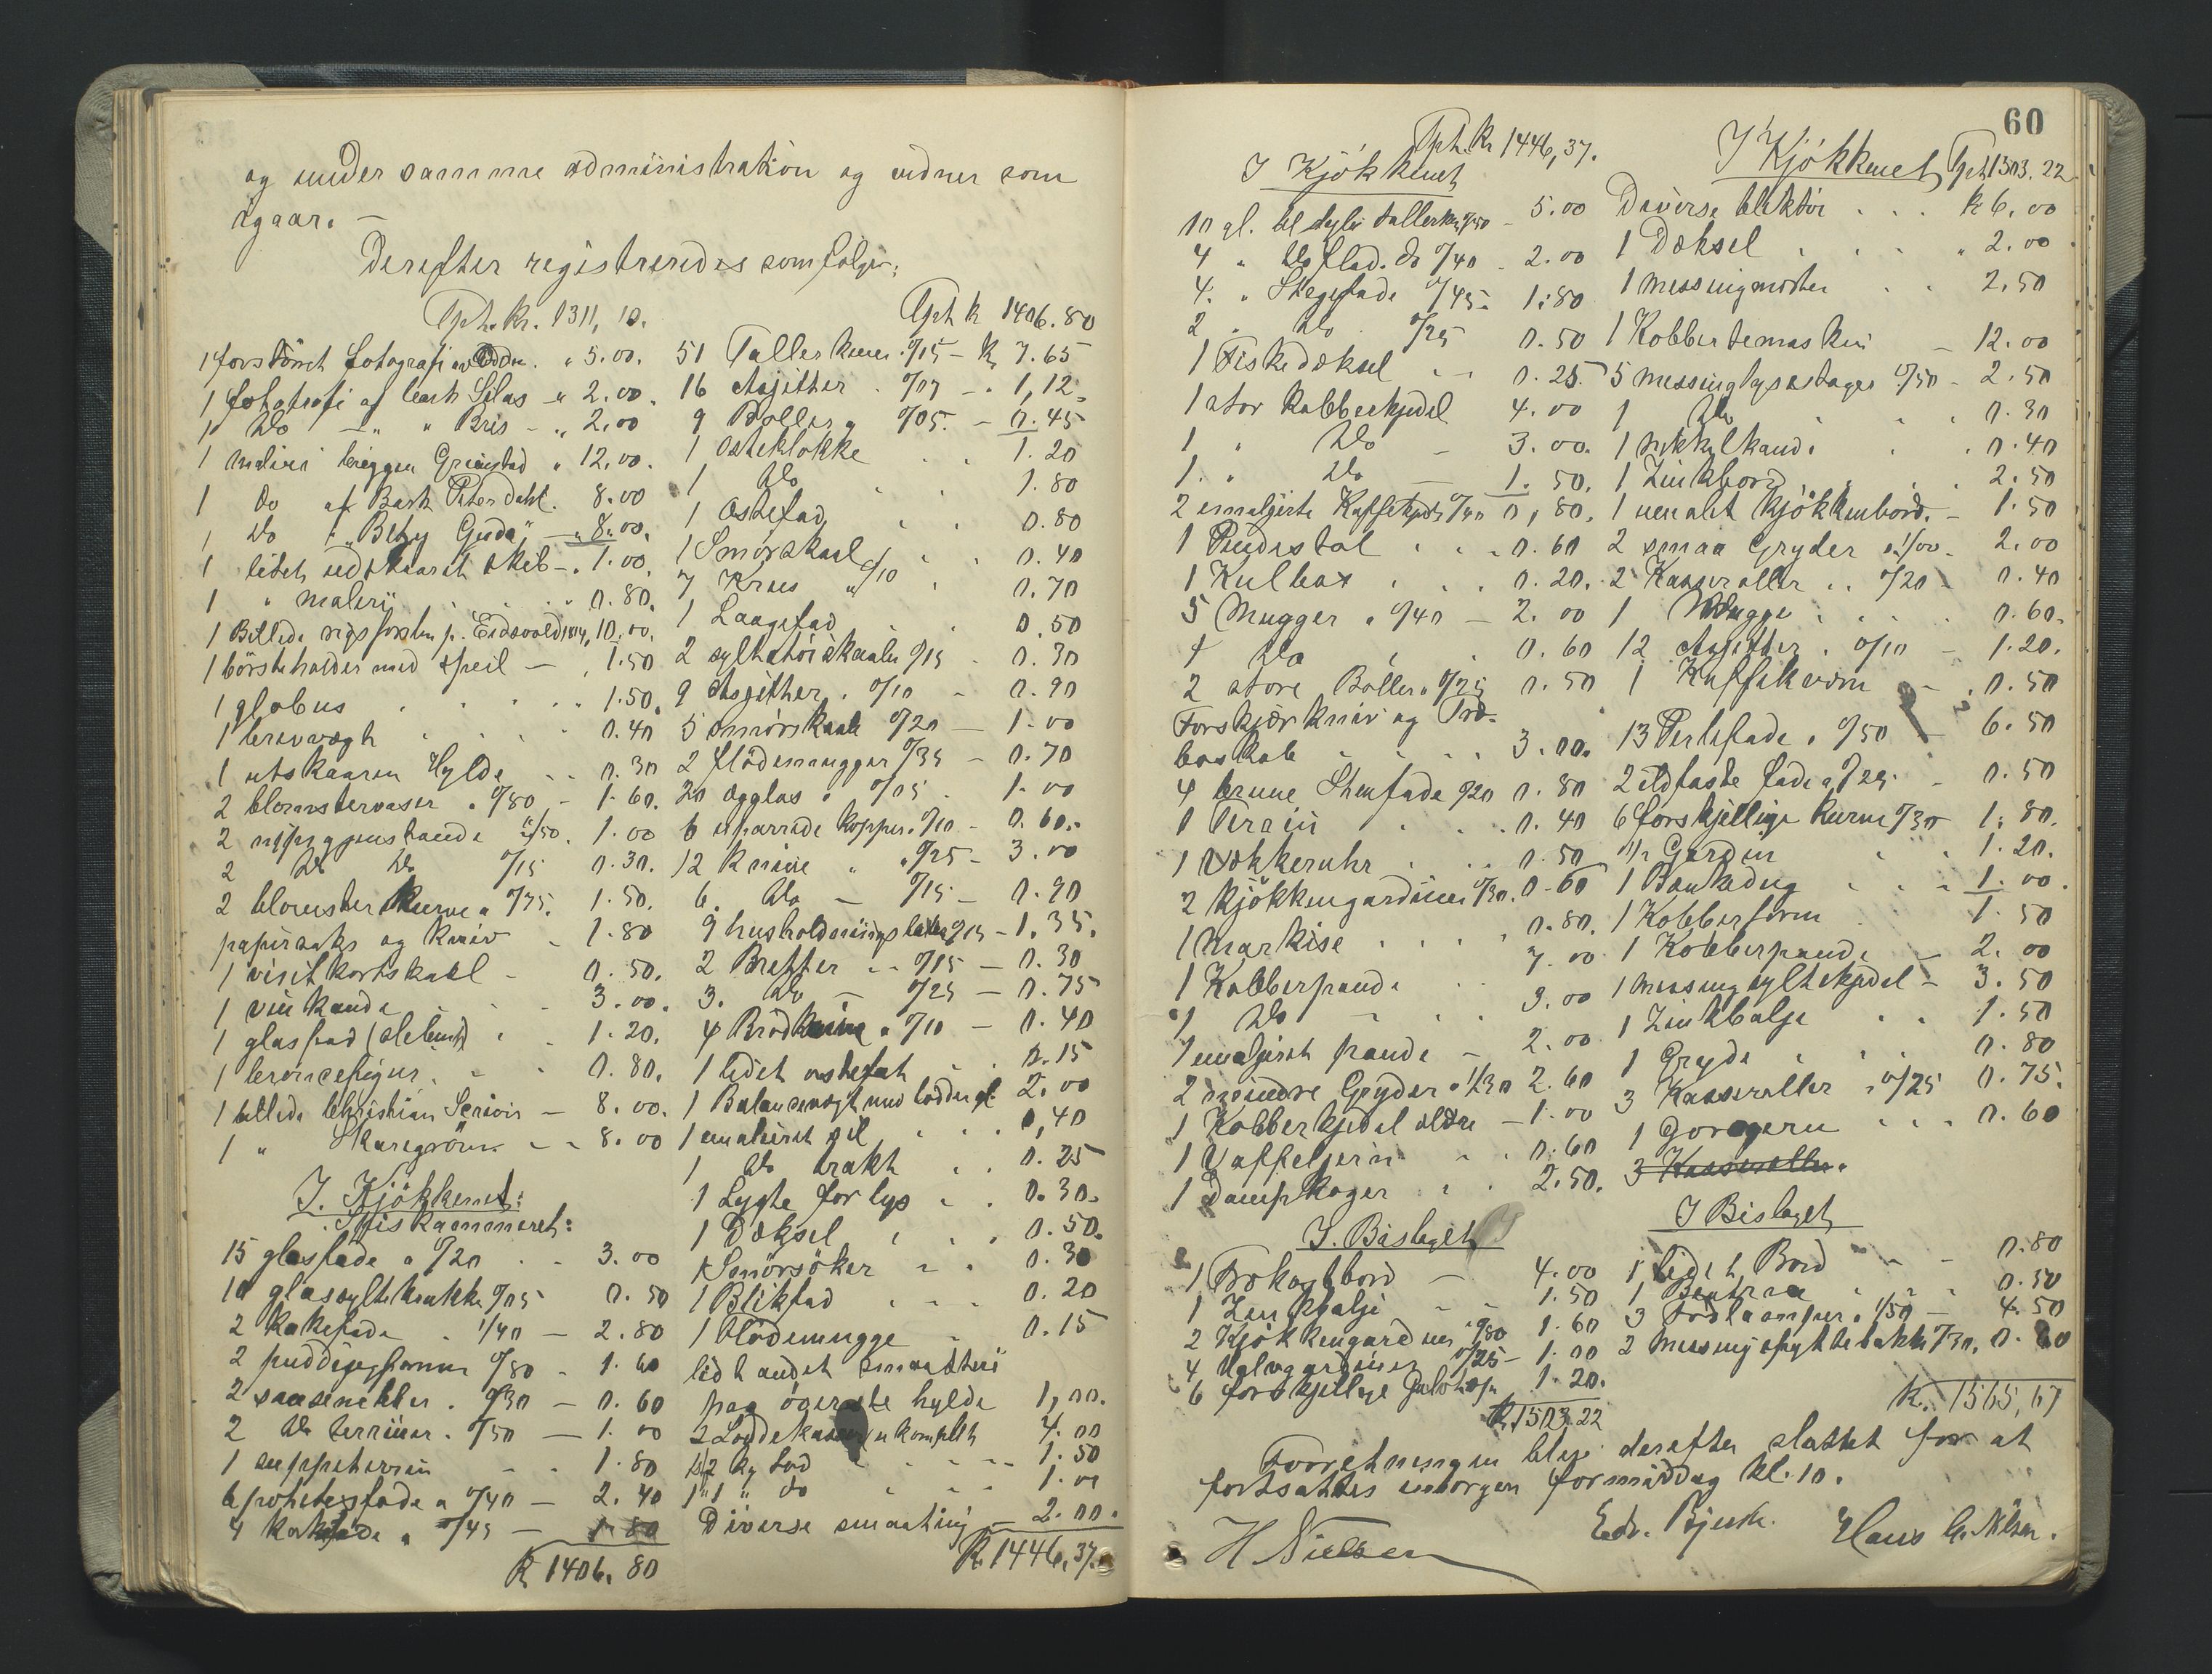 og under samme administration og vidner som
igaar. —
Derefter registreredes som følger:
Tpt. kr. 1311, 10.
1 forstörret fotografi av Odden. " 5.00.
1 fotografi af bark Silas - " 2.00.
1 Do — " " Bris - " 2.00
1 maleri briggen Grimstad " 12.00.
1 do af Bark Peter Dahl. 8.00
1 Do " "Betzy Guda" — " 8.00.
1 lidet udskaaret skib - . 1.00.
1 " maleri . . . " 0.80.
1 Billede rigsforslm p. Eidsvold 1814, 10.00.
1 börsteholder med speil — . 1.50
1 globus . . . . 1.50.
1 brevvægt . . . . 0.40
1 utskaaren Hylde . . 0.30
2 blomstervaser a 0/80 - 1.60.
2 nipsgjenstande a 0/50. 1.00
2 Do Do 0/15 0.30.
2 blomsterkurve a 0/75. 1.50.
papirsaks og kniv - 1.80
1 visitkortskaal - 0.50.
1 vinkande . . . 3.00.
1 glasfad . . 1.20.
1 broncefigur . . . 0.80.
1 billede Christian Scriver — 8.00.
1 " . . 8.00
I. Kjökkenet:
Spiskammeret:
15 glasfade a 0/20 . . 3.00
10 glassyltekrukke 0/05 0.50
2 kakefade . 1/40 — 2.80
2 puddigegforme 0/80 - 1.60
2 sausenebber . 0/30 — 0.60
2 Do terriner . 0/50 — 1.00
1 suppeterrin . . 1.80
6 potetesfade a 0/40 — 2.40
4 kakefade a 0/45 — 1.80
Kr 1406.80
Tpt kr 1406.80
51 Tallerkener . 0/15 — Kr 7.65
16 Asjetter . 0/07 — . 1,12.
9 Boller a 0/05. — 0.45
1 osteklokke . . 1.20
1 Do . . 1.80
1 Ostefad . . 0.80
1 Smörskaal . . 0.40
7 Krus a 0/10 . 0.70
1 Laagefad . . 0.50
2 syltetöiskaaler 0/15 - 0.30
9 Asjetter . 0/10 - 0.90
5 smörskaale 0/20 — 1.00
2 flödemugger 0/35 - 0.70
20 ægglas a 0/05 . 1.00
6 uparrede kopper . 0/10 - 0.60.
12 knive " . 0/25 - 3.00
6. Do — 0/15 — 0.90
9 husholdnings 0/15 - 1.35.
2 Bretter . . 0/15 — 0.30
3. Do — 0/25 — 0.75
4 Brödknive a 0/10 — 0.40
1 lidet ostefat . . 0.15
1 Balansevægt med lodder 2.00
1 emaleiret sil . . . 0,40
1 Do trakt . . 0.25
1 Lygte for lys . . 0.30.
1 Dæksel . . . 0.50.
1 Smörsöker . . 0.30
1 Blikfad . . . 0.20
1 blödemugge . 0.15
lidt andet smaatteri
paa ögerste hylde 1,00.
2 Loddekasser ukomplett 4.00
1/2 kg lod . . . . 1.50
1 " 1 " do . . . 1.00
Diverse smaating — 2.00.
Kr. 1446,37.
60
Tpt. kr 1446,37.
I Kjökkenet
10 gl. bl dybe tallerken 0/50 — 5.00
4 " Do flad. do 0/40 - 2.00
4. " Stegefade 0/45 - 1.80
2 " Do . 0/25 0.50
1 Fiskedæksel . . 0.25.
1 stor kobberkjedel 4.00
1 " Do — 3.00.
1. " Do — 1.50.
2 emalgerte Kaffekjedle 0/40 0,80.
1 Pindestol . . . 0.60
1 Kulbox . . . 0.20.
5 Mugger a 0/40 — 2.00
4 Do . . 0.60
2 store Boller a 0/25 0.50
Forskjærkniv og
. . . . 3.00.
4 brune Stenfade 0/20 0.80
1 Terrin . . . 0.40
1 Vækkeruhr . . . 0.50
2 kjökkengardiner 0/30. 0.60
1 Markise . . . . 0.80.
1 Kobberpande . . 7.00
1 Do — . . 3.00
1 emaljert pande — 2.00
2 mindre Gryder a 1/30 2.60
1 Kobberkjedel ældre — 1.00
1 Vaffeljern . . 0.60
1 Dampkoger . . 2.50.
I. Bislaget
1 Frokostbord — 4.00
1 Zinkbalje . . 1.50
2 Kjökkengardiner . 0/80 1.60
4 Halvgardiner 0/25 — 1.00
6 forskjellige 1.20.
Kr. 1503.22
I Kjökkenet Tpt 1503.22
Diverse bliktöi . . . kr 6.00
1 Dæksel . . . . " 2.00
1 messingmorter . . 2.50
1 Kobbertemaskin — 12.00
5 messinglysestager 0/50 - 2.50
1 Do . . . 0.30
1 nykkelkande . . 0.40
1 Zinkbord . . . 2.50
1 umalet kjökkenbord. — 1.50
2 smaa Gryder a 1/00. 2.00
2 Kasseroller . . 0/20 - 0.40
1 Mugge . . . . 0.60.
12 Asjetter . 0/10 — 1.20.
1 Kaffekværn — . 0.50
13 Perlefade . 0/50 — 6.50
2 ildfaste fade a 0/25. — 0.50
6 forskjellige kurve 0/30 1.80.
1/2 Gardin . . 1.20.
1 Bænkedug . . . 1.00.
1 Kobberform . 1.50
1 Kobberpande — 2.00
1 messing syltekjedel — 3.50
1 Zinkbalje . . 1.50
1 Gryde . . . 0.80
3 Kasseroller . a 0/25 0.75.
1 Gorojern . . . 0.60
3 Kasseroller.
I Bislaget
1 lidet Bord . — 0.80
1 . . 0.50
3 a 1/50 — 4.50
2 messing spyttebakke 0/30. 0.60
Kr. 1565,67
Forretningen blev derefter sluttet for at
fortsættes imorgen formiddag kl. 10.
H Nielsen Edv. Bjush. Hans G. Nilsen.